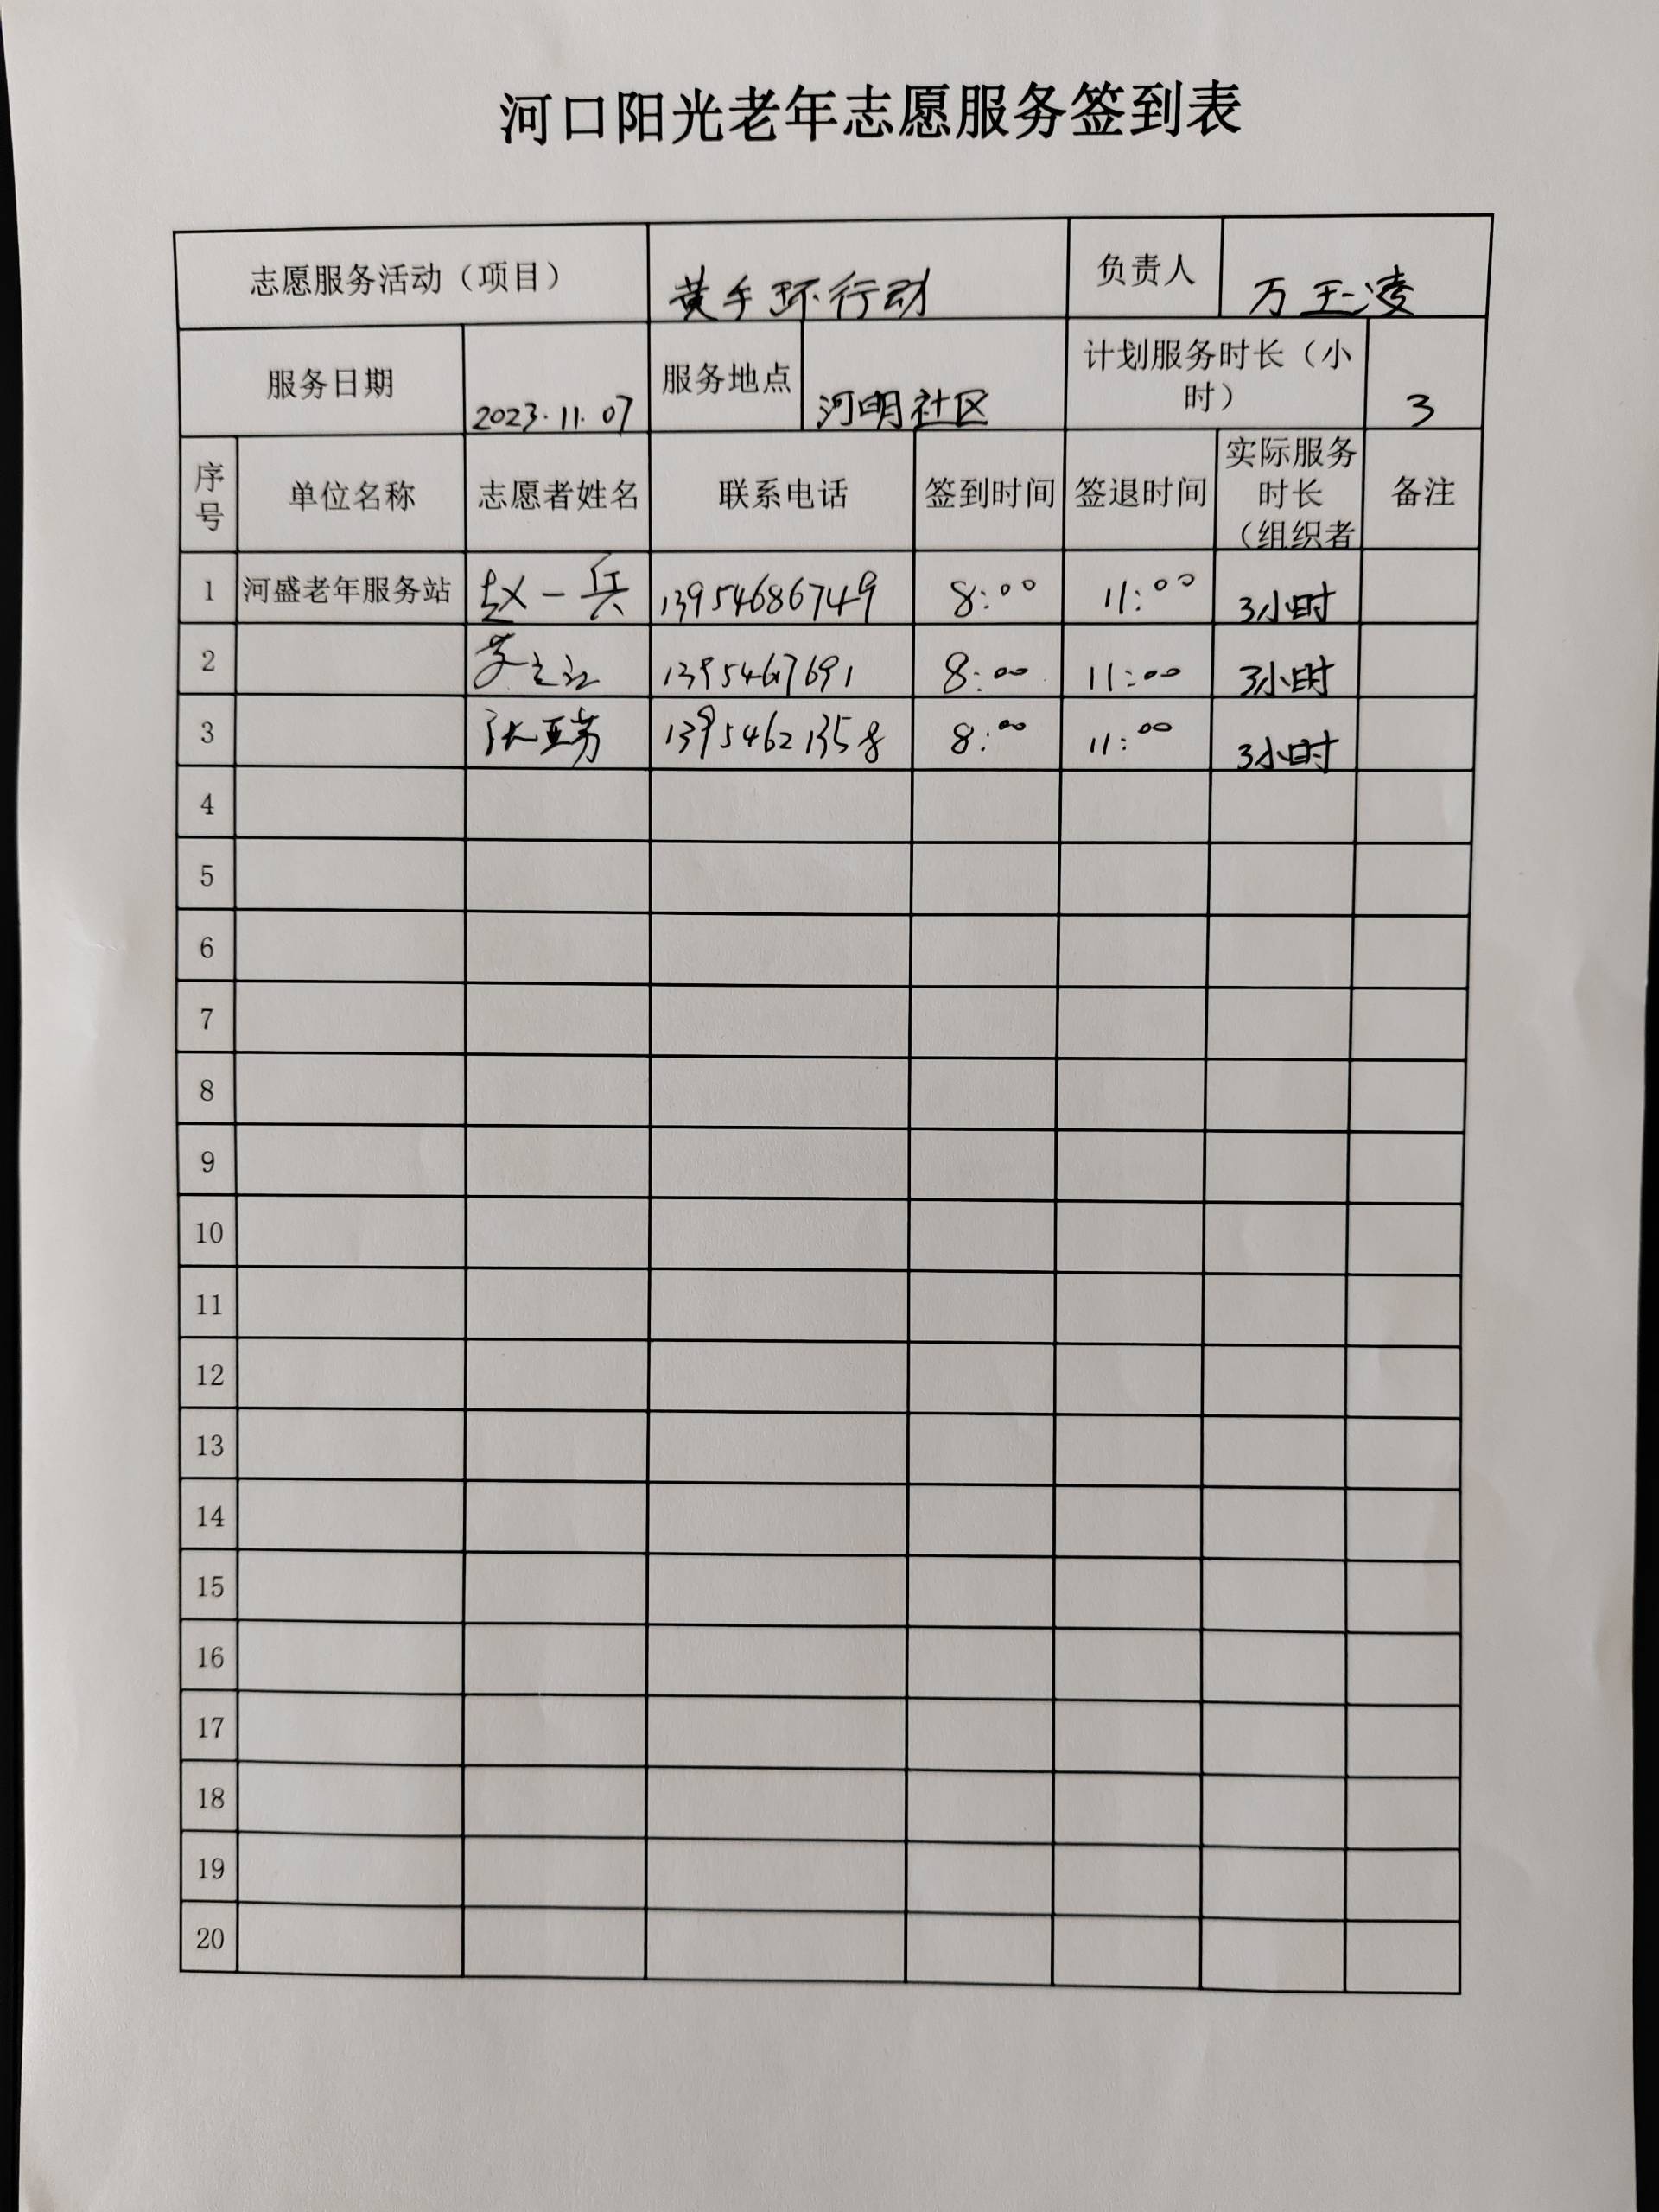 河口阳光老年志愿服务签到表
志愿服务活动（项目） 黄手环行动 负责人 万玉凌
服务日期 2023.11.07 服务地点 河明社区 计划服务时长（小时） 3
序号 单位名称 志愿者姓名 联系电话 签到时间 签退时间 实际服务时长（组织者 备注
1 河盛老年服务站 赵一兵 13954686749 8:00 11:00 3小时
2 1395467691 8:00 11:00 3小时
3 张亚芳 13954621358 8:00 11:00 3小时
4
5
6
7
8
9
10
11
12
13
14
15
16
17
18
19
20